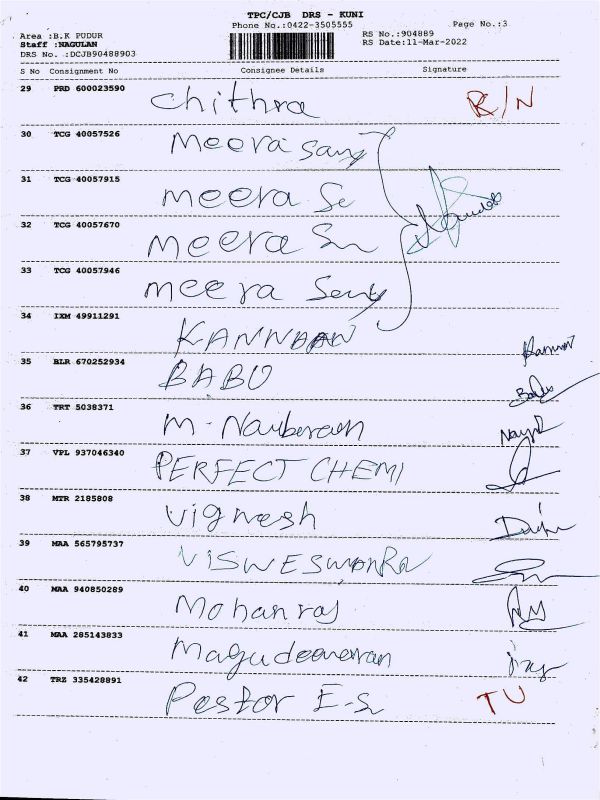 TPC/CJB DRS - KUNI
Phone No.:0422-3505555 Page No.:3
Area :B.K PUDUR RS No.:904889
Staff :NAGULAN RS Date:11-Mar-2022
DRS No. :DCJB90488903
S No Consignment No Consignee Details Signature
29 PRD 600023590 Chithra R/N
30 TCG 40057526 meera Sang
31 TCG 40057915 meera Se
32 TCG 40057670 meera
33 TCG 40057946 meera
34 IXM 49911291 KANNAAN Kannan
35 BLR 670252934 BABU Babu
36 TRT 5038371 M.
37 VPL 937046340 PERFECT CHEMI
38 MTR 2185808 Vignesh
39 MAA 565795737 VISWESWARA
40 MAA 940850289 Mohanraj
41 MAA 285143833
42 TRZ 335428891 Pastor E-S TU